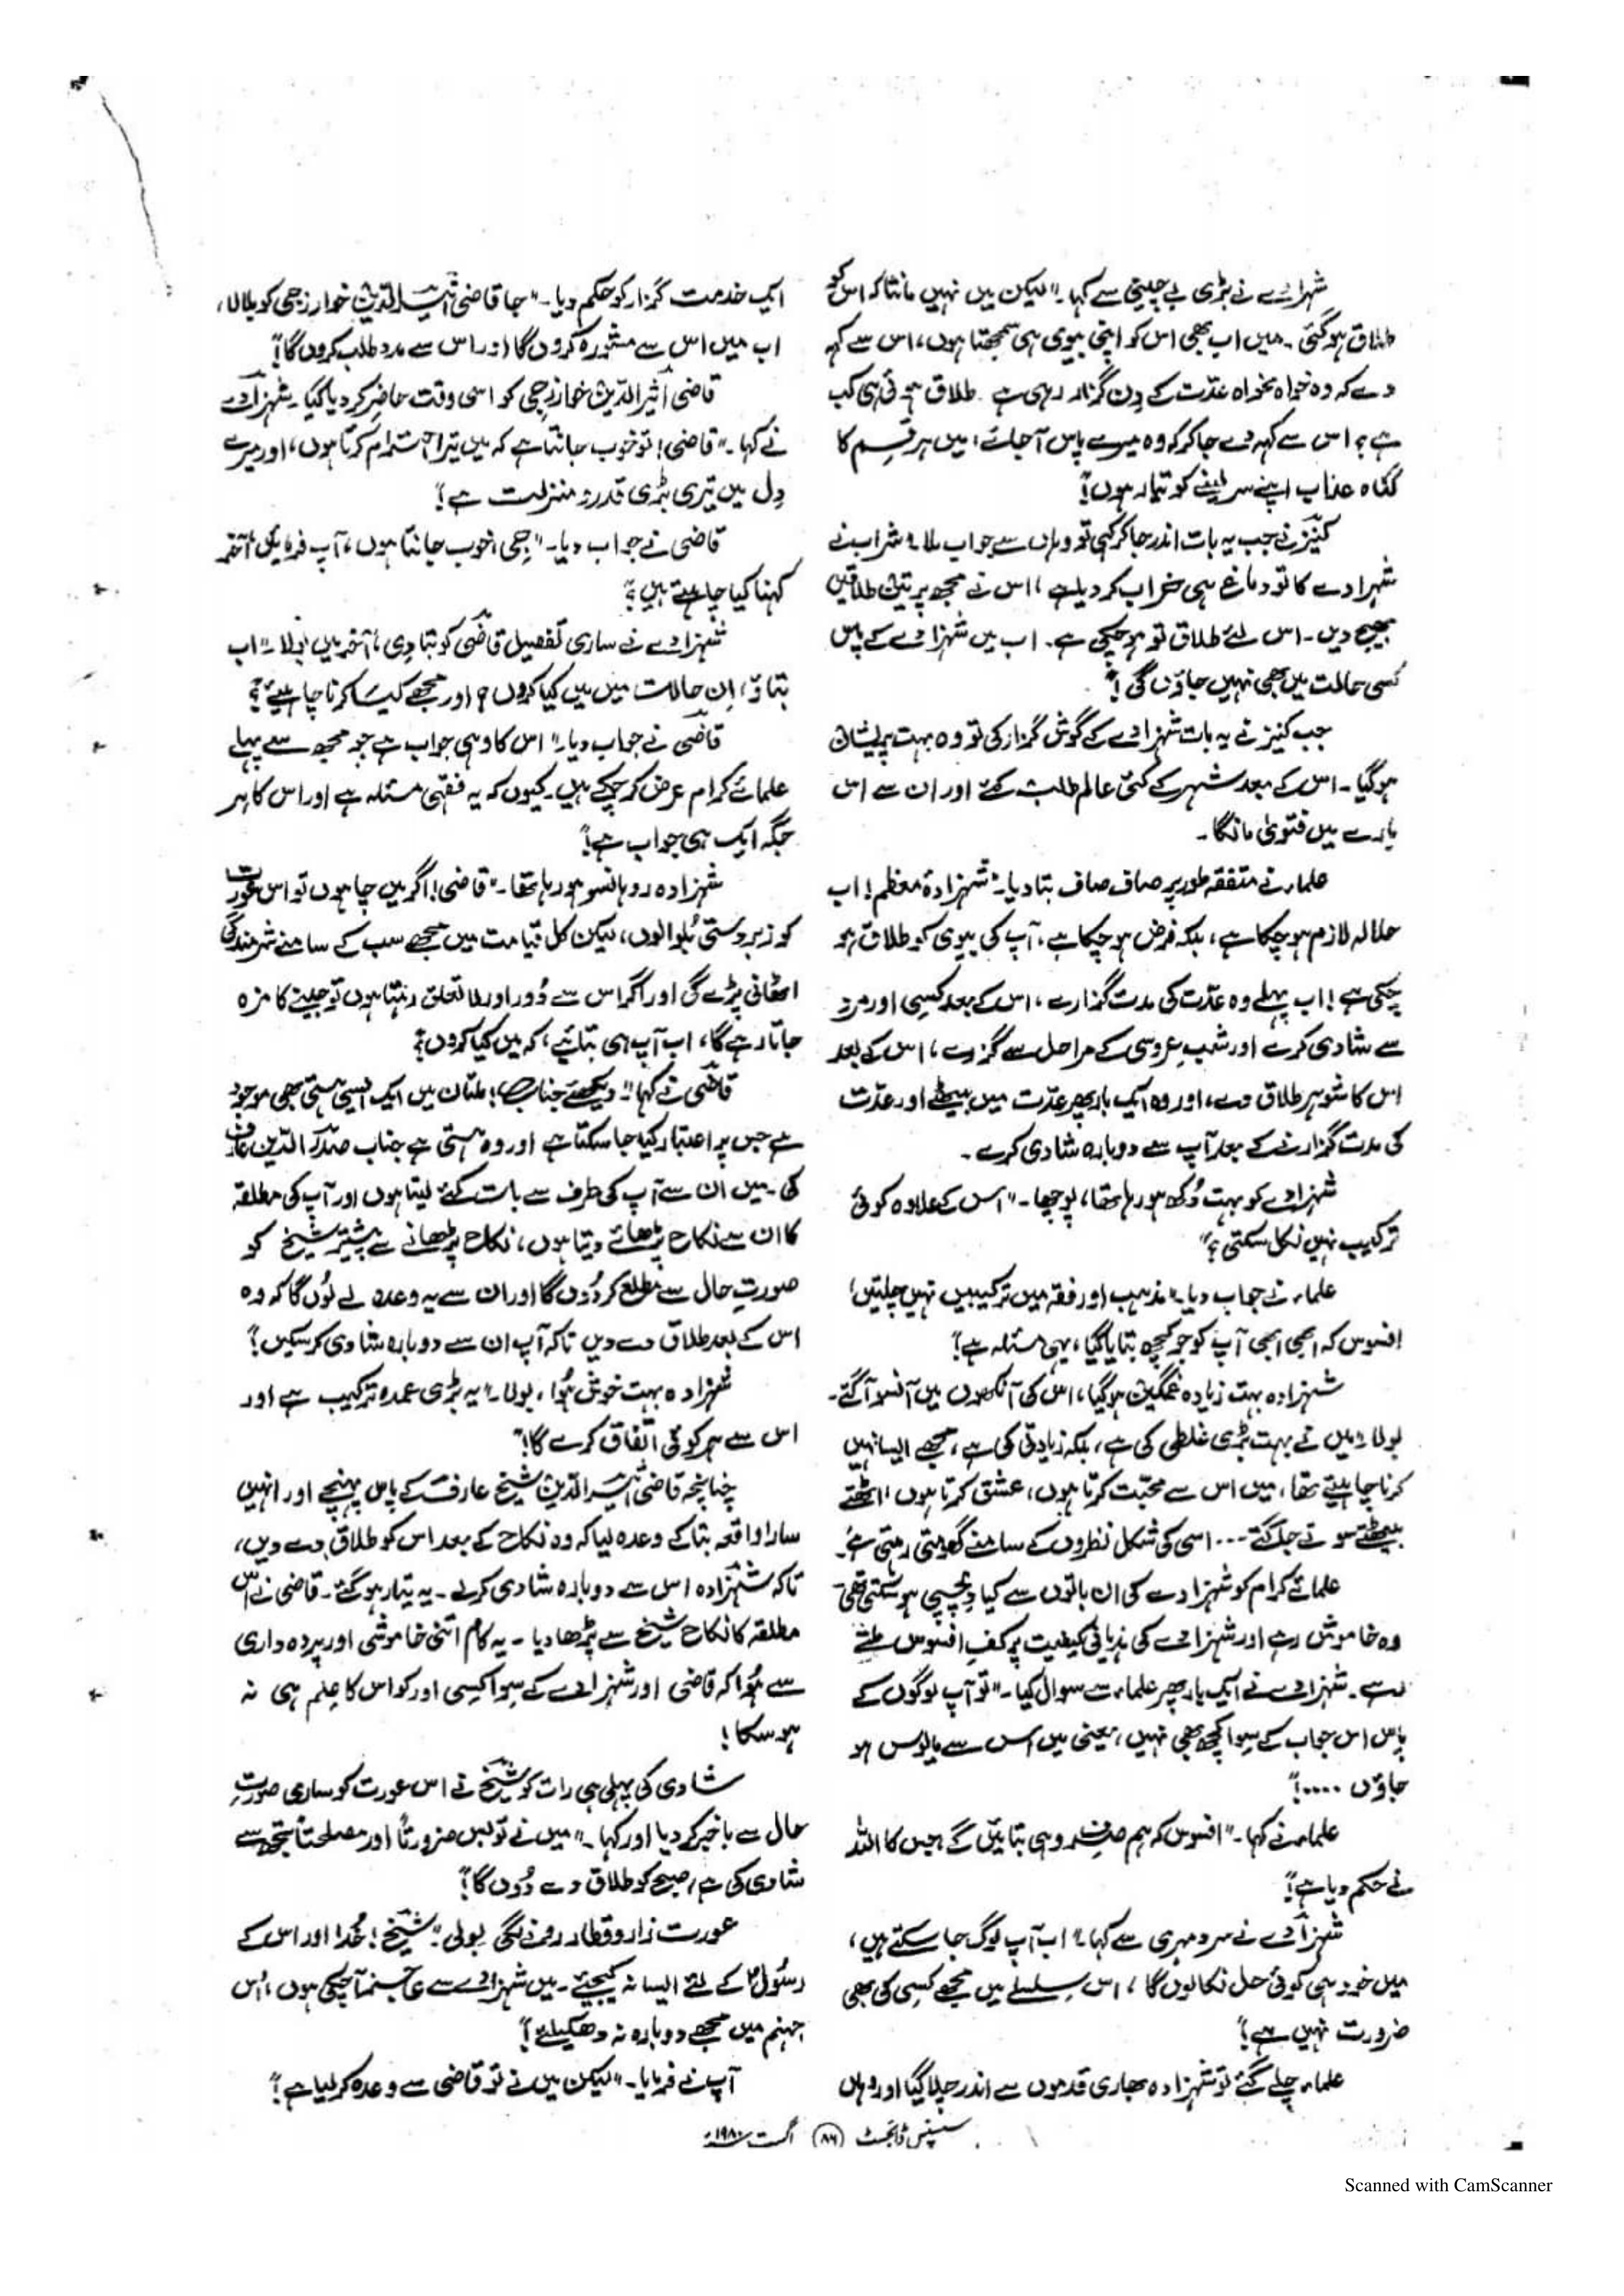 شہزادے نے بڑی بے چینی سے کہا۔ "لیکن میں نہیں مانتا کہ اس کو
طلاق ہوگئی۔ میں اب بھی اس کو اپنی بیوی ہی سمجھتا ہوں، اس سے کہہ
دے کہ وہ خواہ مخواہ عدّت کے دِن گزار رہی ہے۔ طلاق ہوئی ہی کب
ہے؟ اس سے کہہ دے جا کر کہ وہ میرے پاس آجائے، میں ہر قِسم کا
گناہ عذاب اپنے سر لینے کو تیار ہوں"!
کنیز نے جب یہ بات اندر جاکر کہی تو وہاں سے جواب ملا "شراب نے
شہزادے کا تو دماغ ہی خراب کر دیا ہے، اس نے مجھ پر تین طلاقیں
بھیج دیں۔ اس لئے طلاق تو ہو چکی ہے۔ اب میں شہزادے کے پاس
کسی حالت میں بھی نہیں جاؤں گی"!
جب کنیز نے یہ بات شہزادے کے گوش گزار کی تو وہ بہت پریشان
ہوگیا۔ اس کے بعد شہر کے کئی عالم طلب کئے اور ان سے اس
بارے میں فتویٰ مانگا۔
علماء نے متفقہ طور پر صاف صاف بتا دیا: "شہزادۂ معظم! اب
حلالہ لازم ہو چکا ہے، بلکہ فرض ہو چکا ہے، آپ کی بیوی کو طلاق ہو
چکی ہے! اب پہلے وہ عدّت کی مدت گزارے، اس کے بعد کسی اور مرد
سے شادی کرے اور شبِ عروسی کے مراحل سے گزرے، اس کے بعد
اس کا شوہر طلاق دے، اور وہ ایک بار پھر عدّت میں بیٹھے اور عدّت
کی مدت گزارنے کے بعد آپ سے دوبارہ شادی کرے۔
شہزادے کو بہت دُکھ ہو رہا تھا، پوچھا۔ "اس کے علاوہ کوئی
ترکیب نہیں نکل سکتی؟"
علماء نے جواب دیا "مذہب اور فقہ میں ترکیبیں نہیں چلتیں،
افسوس کہ ابھی ابھی آپ کو جو کچھ بتایا گیا، یہی مسئلہ ہے"!
شہزادہ بہت زیادہ غمگین ہوگیا، اس کی آنکھوں میں آنسو آگئے۔
بولا "میں نے بہت بڑی غلطی کی ہے، بلکہ زیادتی کی ہے، مجھے ایسا نہیں
کرنا چاہیئے تھا، میں اس سے محبّت کرتا ہوں، عشق کرتا ہوں، اٹھتے
بیٹھتے سوتے جاگتے... اسی کی شکل نظروں کے سامنے گھومتی رہتی ہے۔
علمائے کرام کو شہزادے کی ان باتوں سے کیا دِلچسپی ہو سکتی تھی
وہ خاموش رہے اور شہزادے کی ہذیانی کیفیت پر کفِ افسوس ملتے
رہے۔ شہزادے نے ایک بار پھر علماء سے سوال کیا۔ "تو آپ لوگوں کے
پاس اس جواب کے سِوا کچھ بھی نہیں، یعنی میں اس سے مایوس ہو
جاؤں ....!"
علماء نے کہا۔ "افسوس کہ ہم صرف وہی بتائیں گے جس کا اللہ
نے حکم دیا ہے"!
شہزادے نے سرد مہری سے کہا "اب آپ لوگ جاسکتے ہیں،
میں خود ہی کوئی حل نکالوں گا، اس سِلسلے میں مجھے کسی کی بھی
ضرورت نہیں ہے"!
علماء چلے گئے تو شہزادہ بھاری قدموں سے اندر چلا گیا اور وہاں
ایک خدمت گزار کو حکم دیا۔ "جا قاضی اثیر الدّین خوارزجی کو بلا لا،
اب میں اس سے مشورہ کروں گا اور اس سے مدد طلب کروں گا"!
قاضی اثیر الدّین خوارزجی کو اسی وقت حاضِر کر دیا گیا۔ شہزادے
نے کہا۔ "قاضی! تو خوب جانتا ہے کہ میں تیرا احترام کرتا ہوں، اور میرے
دِل میں تیری بڑی قدر و منزلت ہے"!
قاضی نے جواب دیا۔ "جی، خوب جانتا ہوں، آپ فرمائیں، آخر
کہنا کیا چاہتے ہیں؟"
شہزادے نے ساری تفصیل قاضی کو بتا دِی، آخر میں بولا "اب
بتاؤ، اِن حالات میں میں کیا کروں؟ اور مجھے کیسَا کرنا چاہیئے؟"
قاضی نے جواب دیا "اس کا وہی جواب ہے جو مجھ سے پہلے
علمائے کرام عرض کر چکے ہیں۔ کیوں کہ یہ فقہی مسئلہ ہے اور اس کا ہر
جگہ ایک ہی جواب ہے"!
شہزادہ روہانسو ہو رہا تھا۔ "قاضی! اگر میں چاہوں تو اس عورت
کو زبردستی بُلوا لوں، لیکن کل قیامت میں مجھے سب کے سامنے شرمندگی
اٹھانی پڑے گی اور اگر اس سے دُور اور لاتعلق رہتا ہوں تو جینے کا مزہ
جاتا رہے گا، اب آپ ہی بتائیے، کہ میں کیا کروں؟"
قاضی نے کہا "دیکھئے جناب! ملتان میں ایک ایسی ہستی بھی موجود
ہے جس پر اعتبار کیا جا سکتا ہے اور وہ ہستی ہے جناب صدر الدّین عارف
کی۔ میں ان سے آپ کی طرف سے بات کئے لیتا ہوں اور آپ کی مطلقہ
کا ان سے نکاح پڑھائے دیتا ہوں، نکاح پڑھانے سے پیشتر شیخ کو
صورتِ حال سے مطلع کر دُوں گا اور ان سے یہ وعدہ لے لُوں گا کہ وہ
اس کے بعد طلاق دے دیں تاکہ آپ ان سے دوبارہ شادی کر سکیں"!
شہزادہ بہت خوش ہُوا، بولا۔ "یہ بڑی عمدہ ترکیب ہے اور
اس سے ہر کوئی اتّفاق کرے گا!"
چنانچہ قاضی اثیر الدّین شیخ عارف کے پاس پہنچے اور انہیں
سارا واقعہ بتا کے وعدہ لیا کہ وہ نکاح کے بعد اس کو طلاق دے دیں،
تاکہ شہزادہ اس سے دوبارہ شادی کرلے۔ یہ تیار ہو گئے۔ قاضی نے اس
مطلقہ کا نکاح شیخ سے پڑھا دیا۔ یہ کام اتنی خاموشی اور پردہ داری
سے ہُوا کہ قاضی اور شہزادے کے سِوا کِسی اور کو اس کا عِلم ہی نہ
ہو سکا!
شادی کی پہلی ہی رات کو شیخ نے اس عورت کو ساری صورتِ
حال سے باخبر کر دیا اور کہا۔ "میں نے تو بس ضرورتاً اور مصلحتاً تجھ سے
شادی کی ہے، صبح کو طلاق دے دُوں گا"!
عورت زار و قطار رونے لگی بولی "شیخ! خُدا اور اس کے
رسُولؐ کے لئے ایسا نہ کیجیئے۔ میں شہزادے سے عاجز آچکی ہوں، اُس
جہنم میں مجھے دوبارہ نہ دھکیلئے"!
آپ نے فرمایا۔ "لیکن میں نے تو قاضی سے وعدہ کر لیا ہے"!
سسپنس ڈائجسٹ (۸۶) اگست ۱۹۸۰ء
Scanned with CamScanner